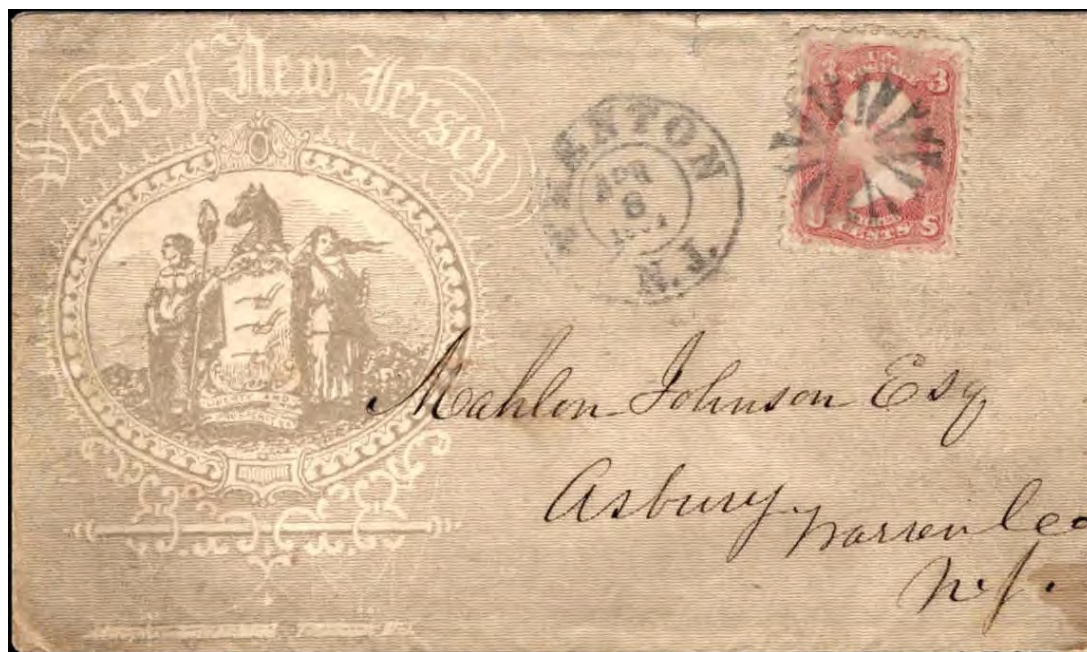 State of New Jersey
LIBERTY AND
PROSPERITY
TRENTON
APR
6
N.J.
3
U.S.
3
CENTS
S
Mahlon Johnson Esq
Asbury Warren Co
N.J.